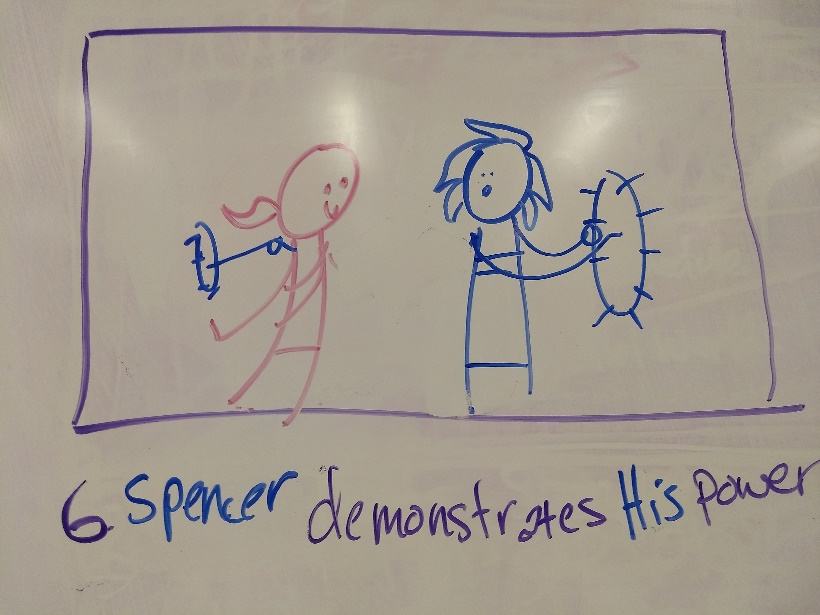 6 Spencer demonstrates His power